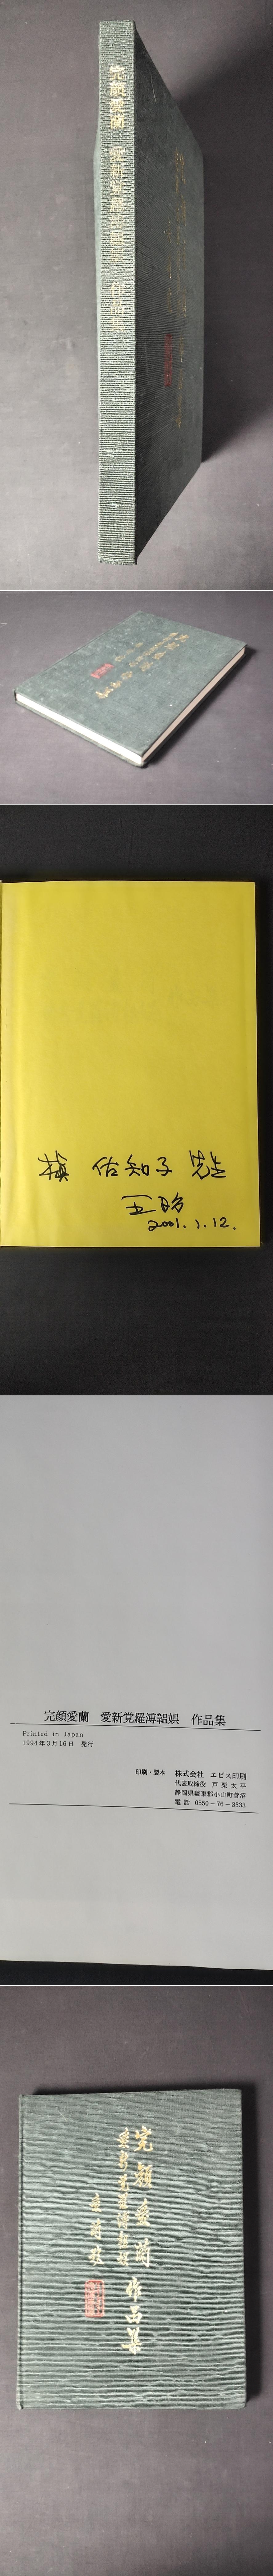 完顔愛蘭 愛新覚羅溥韞娯 作品集
槙 佐知子 先生
2001.1.12.
完顔愛蘭 愛新覚羅溥韞娯 作品集
Printed in Japan
1994年3月16日 発行
印刷・製本 株式会社 エビス印刷
代表取締役 戸栗太平
静岡県駿東郡小山町菅沼
電話 0550-76-3333
完顔愛蘭 作品集
愛新覚羅溥韞娯
愛蘭 题